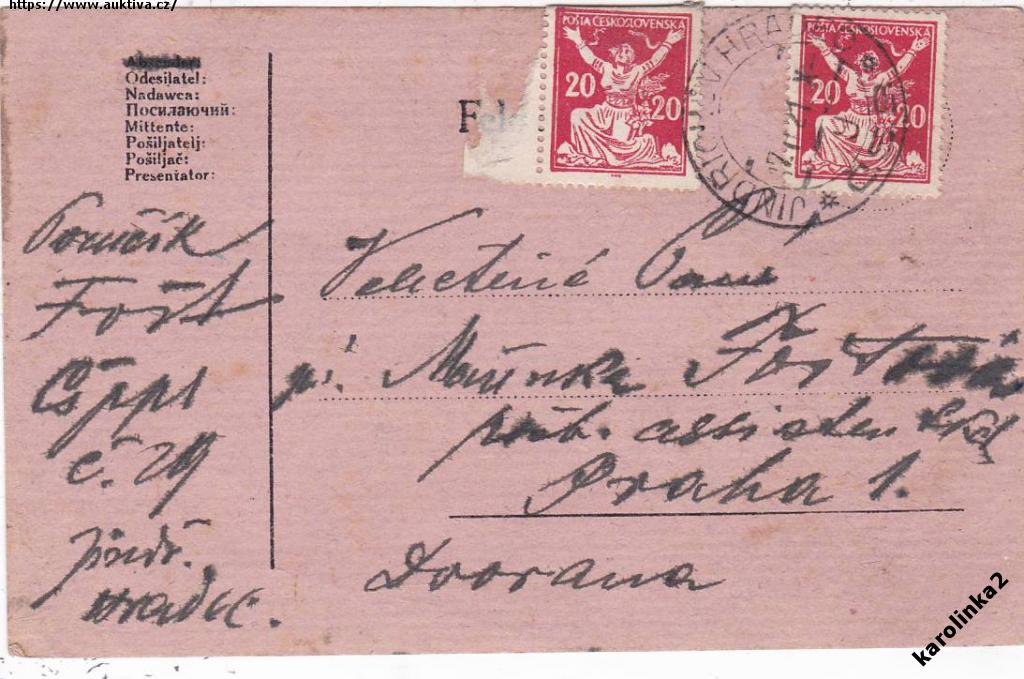 https://www.auktiva.cz/
Absender:
Odesílatel:
Nadawca:
Посилаючий:
Mittente:
Pošiljatelj:
Pošiljač:
Presentator:
Feld
POŠTA ČESKOSLOVENSKÁ
20 20
POŠTA ČESKOSLOVENSKÁ
20 20
JINDŘICHŮV HRADEC
Poručík
Fořt
Čs ppl
č. 29
Jindř.
Hradec.
Velectěné Paní
pí. Mařenka Fořtová
assisten
Praha 1.
Dvorana
karolinka2